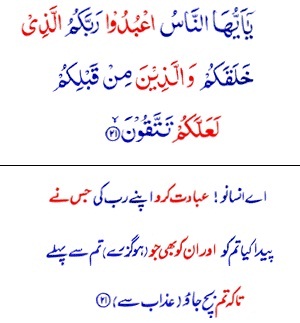 يٰۤاَيُّهَا النَّاسُ اعْبُدُوْا رَبَّكُمُ الَّذِىْ
خَلَقَكُمْ وَالَّذِيْنَ مِنْ قَبْلِكُمْ
لَعَلَّكُمْ تَتَّقُوْنَ ۙ﴿۲۱﴾
اے انسانو! عبادت کرو اپنے رب کی جس نے
پیدا کیا تم کو اور ان کو بھی جو (ہو گزرے) تم سے پہلے
تاکہ تم بچ جاؤ (عذاب سے) ﴿۲۱﴾